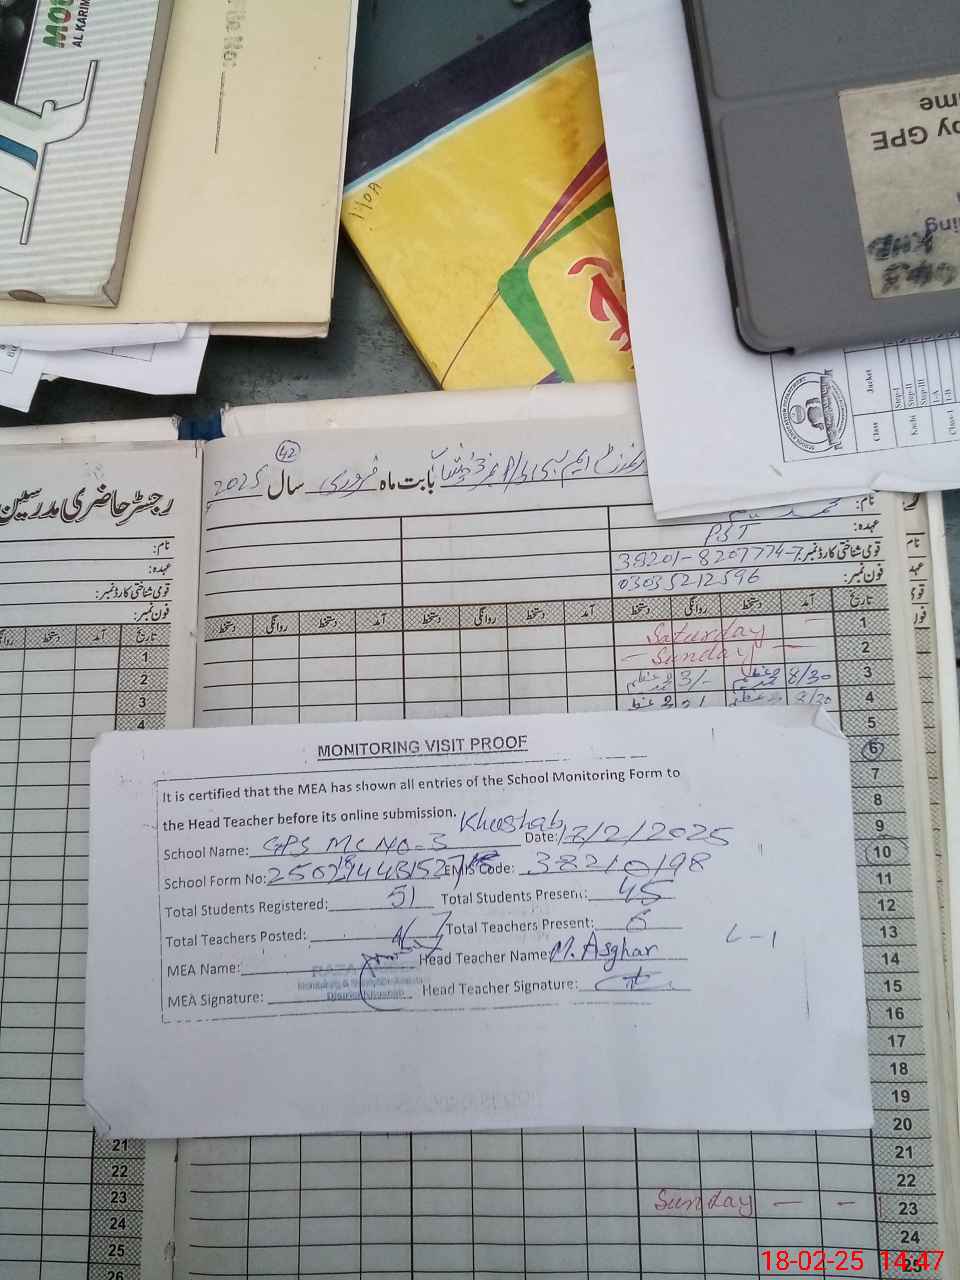 MO
AL KARIM
File No:
110A
by GPE
ame
ning
KHB
Class
Jacket
Kachi
Sup-I
Sup-II
Sup-III
Class-I
I-A
I-B
42
بابت ماہ فروری سال 2025
رجسٹر حاضری مدرسین
نام:
عہدہ: PST
قومی شناختی کارڈ نمبر: 38201-8207774-7
فون نمبر: 03035212596
نام:
عہدہ:
قومی شناختی کارڈ نمبر:
فون نمبر:
تاریخ آمد دستخط روانگی دستخط آمد دستخط روانگی دستخط
تاریخ آمد دستخط
1 Saturday -
2 - Sunday -
3 8/30 3/-
4
5
6
7
8
9
10
11
12
13
14
15
16
17
18
19
20
21
22
23 Sunday - -
24
25
1
2
3
4
21
22
23
24
25
26
MONITORING VISIT PROOF
It is certified that the MEA has shown all entries of the School Monitoring Form to
the Head Teacher before its online submission.
School Name: GPS MC NO-3 Khushab Date: 17/2/2025
School Form No: EMIS Code: 38210198
Total Students Registered: 51 Total Students Present: 45
Total Teachers Posted: Total Teachers Present: 6
MEA Name: Head Teacher Name: M. Asghar
MEA Signature: Head Teacher Signature:
L-1
18-02-25 14:47